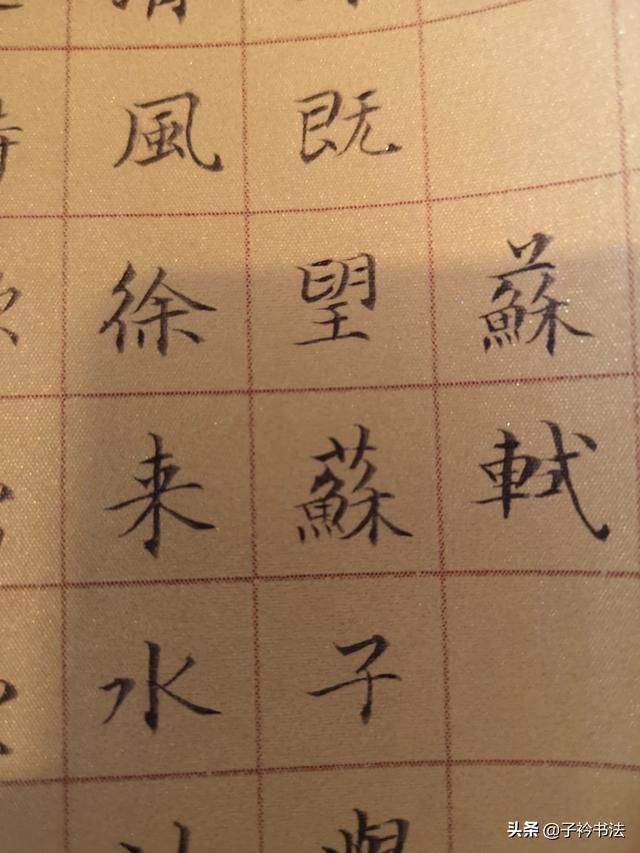 蘇軾
既望蘇子
風徐来水
头条 @子衿书法